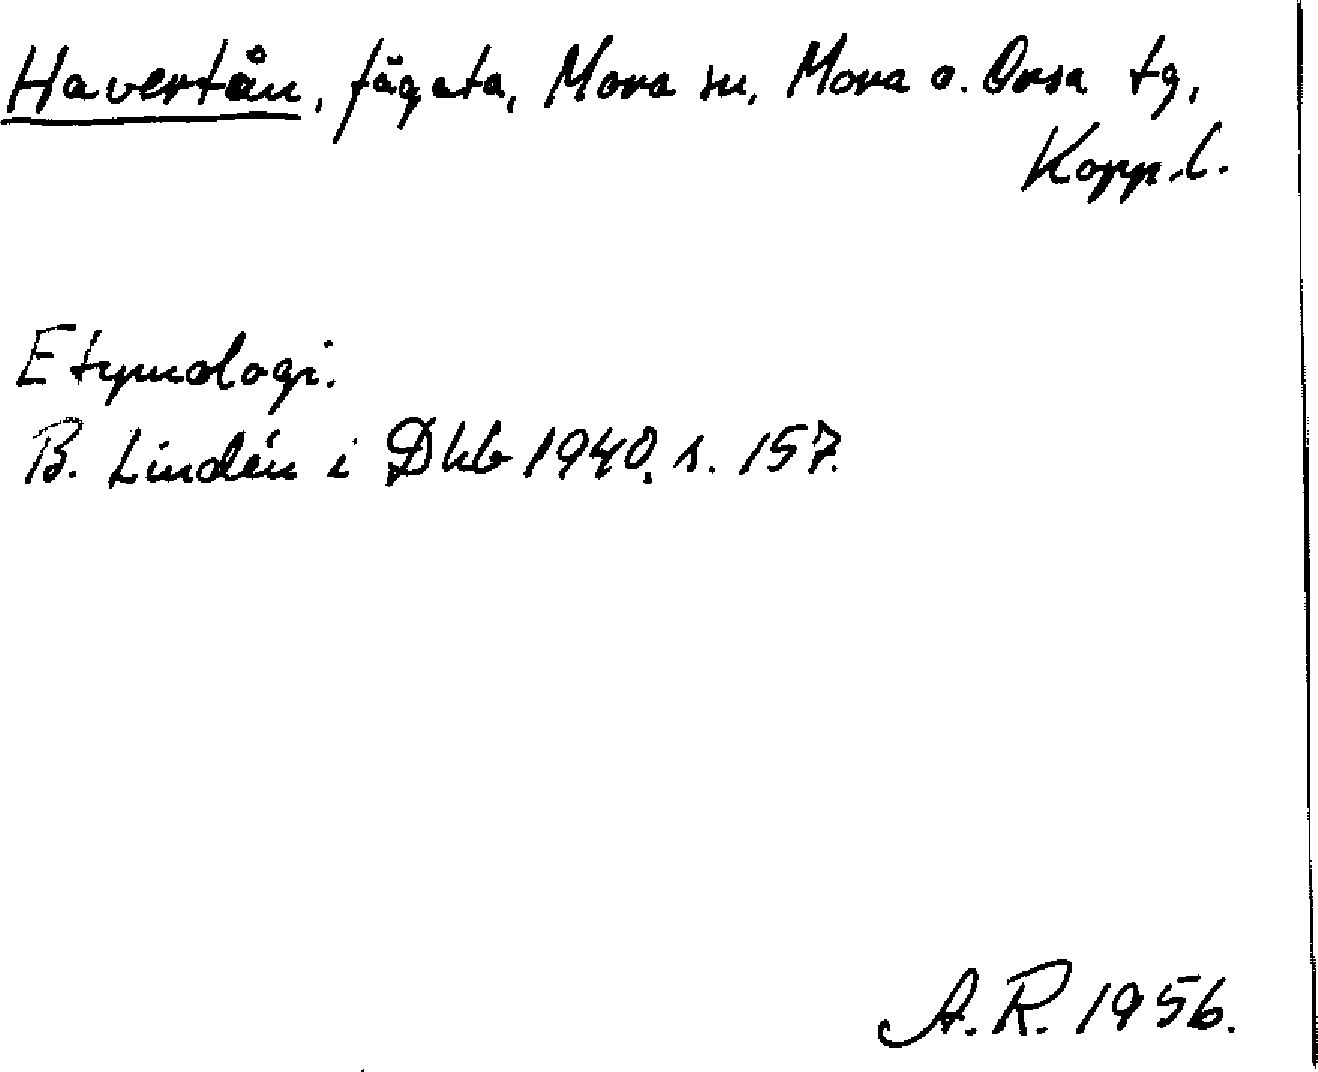 Havertån, fägata, Mora sn, Mora o. Orsa tg,
Kopp.l.
Etymologi.
B. Lindén i Dhb 1940, s. 157.
A.R. 1956.